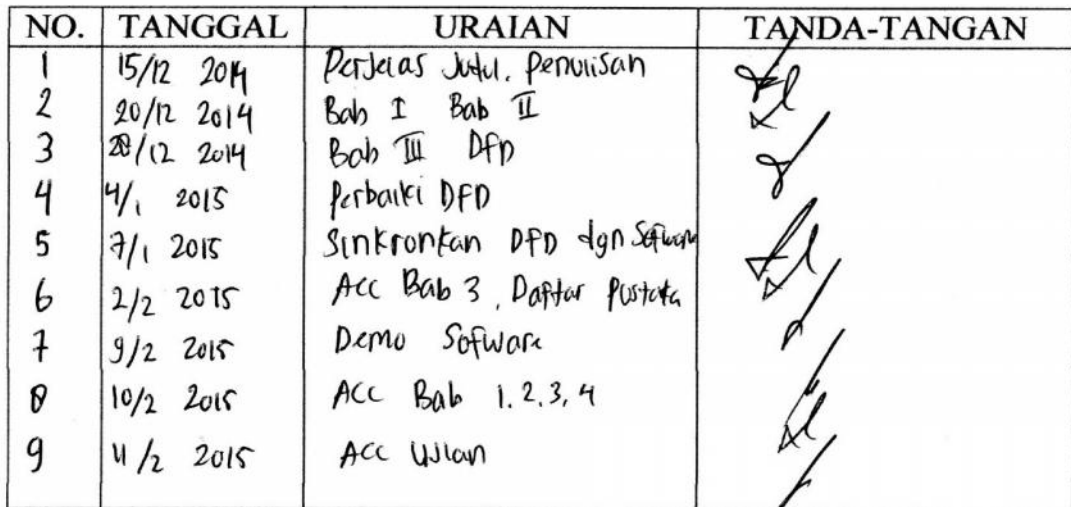 NO. TANGGAL URAIAN TANDA-TANGAN
1 15/12 2014 Perjelas Judul, Penulisan
2 20/12 2014 Bab I Bab II
3 28/12 2014 Bab III DFD
4 4/1 2015 Perbaiki DFD
5 7/1 2015 Sinkronkan DFD dgn Sofware
6 2/2 2015 Acc Bab 3, Daftar Pustaka
7 9/2 2015 Demo Sofware
8 10/2 2015 ACC Bab 1.2.3,4
9 11/2 2015 Acc Ujian